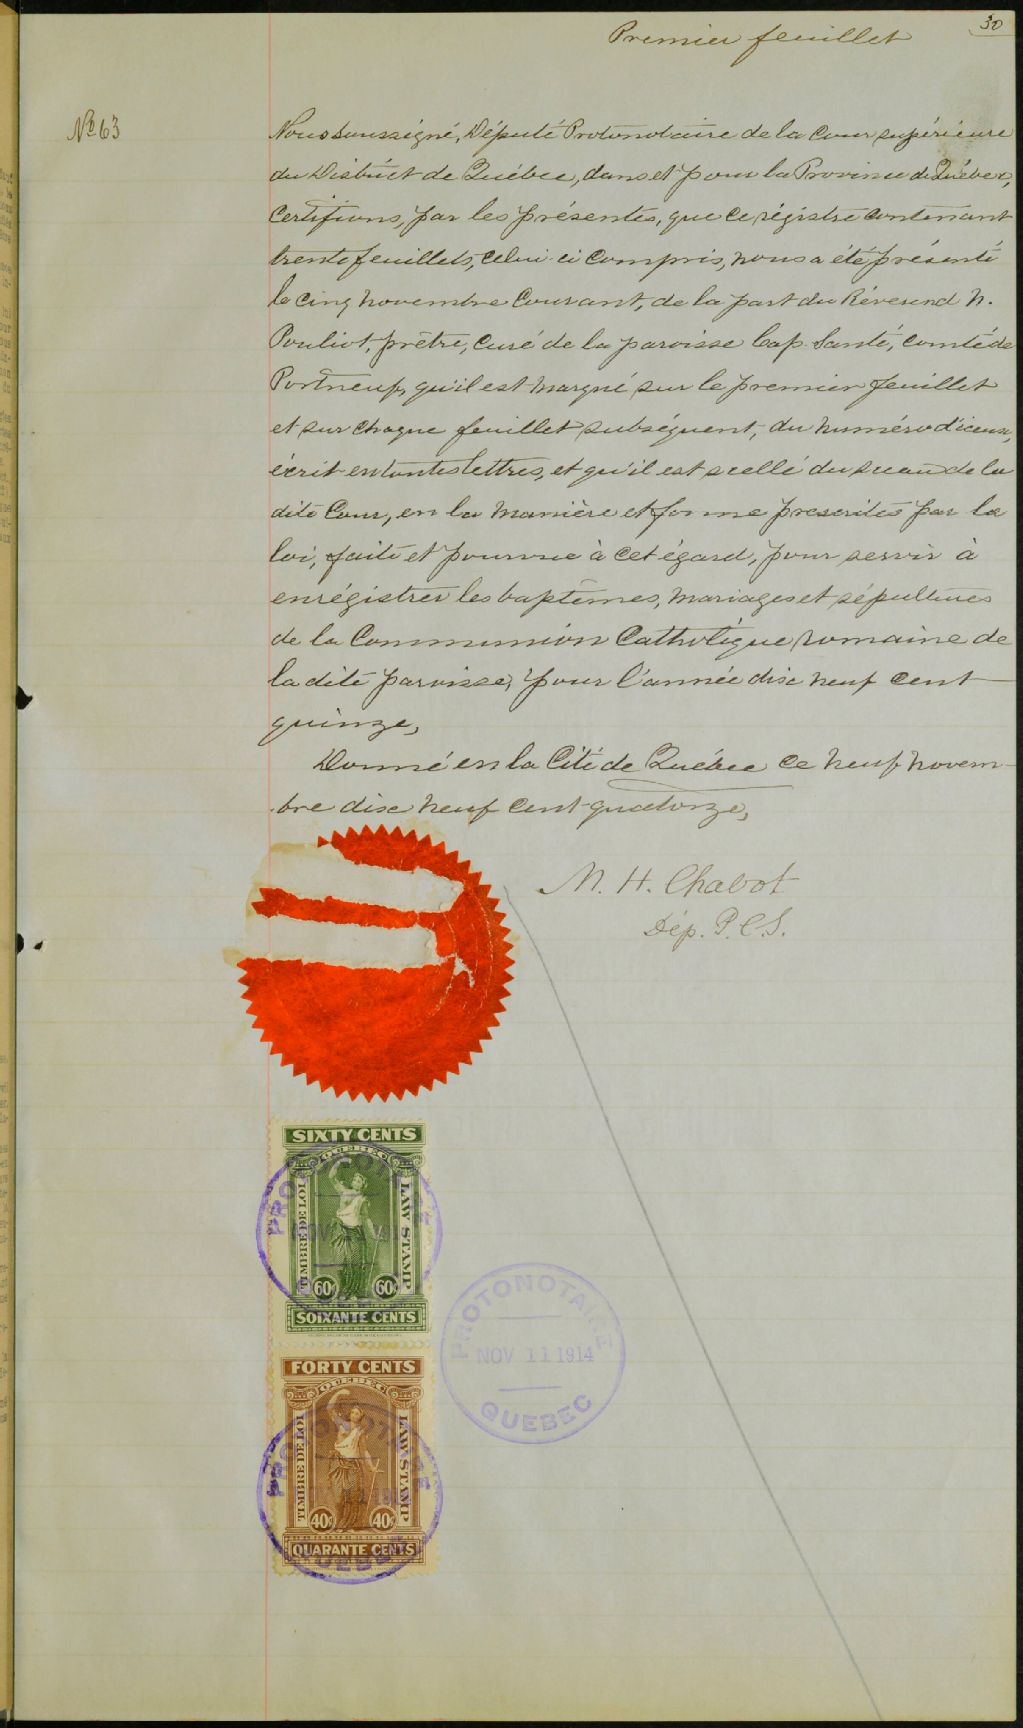 30
Premier feuillet
No 63
Nous soussigné, Député Protonotaire de la Cour supérieure
du District de Québec, dans et pour la Province de Québec,
Certifions, par les présentes, que ce régistre contenant
trente feuillets, celui-ci compris, nous a été présenté
le cinq novembre Courant, de la part du Révérend N.
Pouliot, prêtre, curé de la paroisse Cap-Santé, comté de
Portneuf, qu'il est marqué sur le premier feuillet
et sur chaque feuillet subséquent, du numéro d'iceux,
écrit en toutes lettres, et qu'il est scellé du sceau de la
dite Cour, en la manière et forme prescrites par la
loi, faite et pourvue à cet égard, pour servir à
enrégistrer les baptêmes, mariages et sépultures
de la Communion Catholique romaine de
la dite paroisse, pour l'année dix neuf cent
quinze,
Donné en la Cité de Québec ce neuf novem-
bre dix neuf cent quatorze,
M. H. Chabot
Dép. P.C.S.
SIXTY CENTS
QUEBEC
TIMBRE DE LOI
LAW STAMP
60c 60c
SOIXANTE CENTS
PROTONOTAIRE
NOV 11 1914
QUEBEC
FORTY CENTS
QUEBEC
TIMBRE DE LOI
LAW STAMP
40c 40c
QUARANTE CENTS
PROTONOTAIRE
QUEBEC